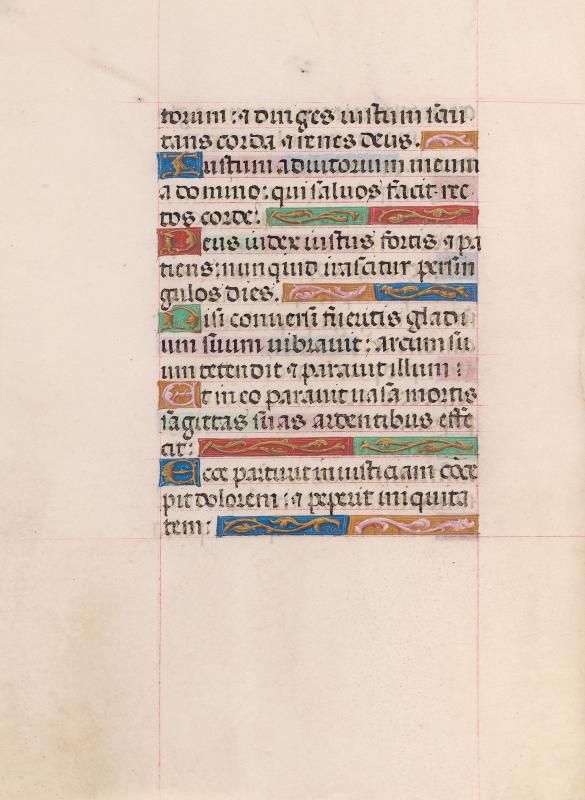 torum: ⁊ diriges iustum scru
tans corda ⁊ renes deus.
Iustum adiutorium meum
a domino: qui saluos facit rec
tos corde:
Deus iudex iustus fortis ⁊ pa
tiens: nunquid irascitur persin
gulos dies.
Nisi conuersi fueritis gladi
um suum uibrauit: arcum su
um tetendit ⁊ parauit illum:
Et in eo parauit uasa mortis
sagittas suas ardentibus effe
cit:
Ecce parturit iniusticiam cōce
pit dolorem: ⁊ peperit iniquita
tem: